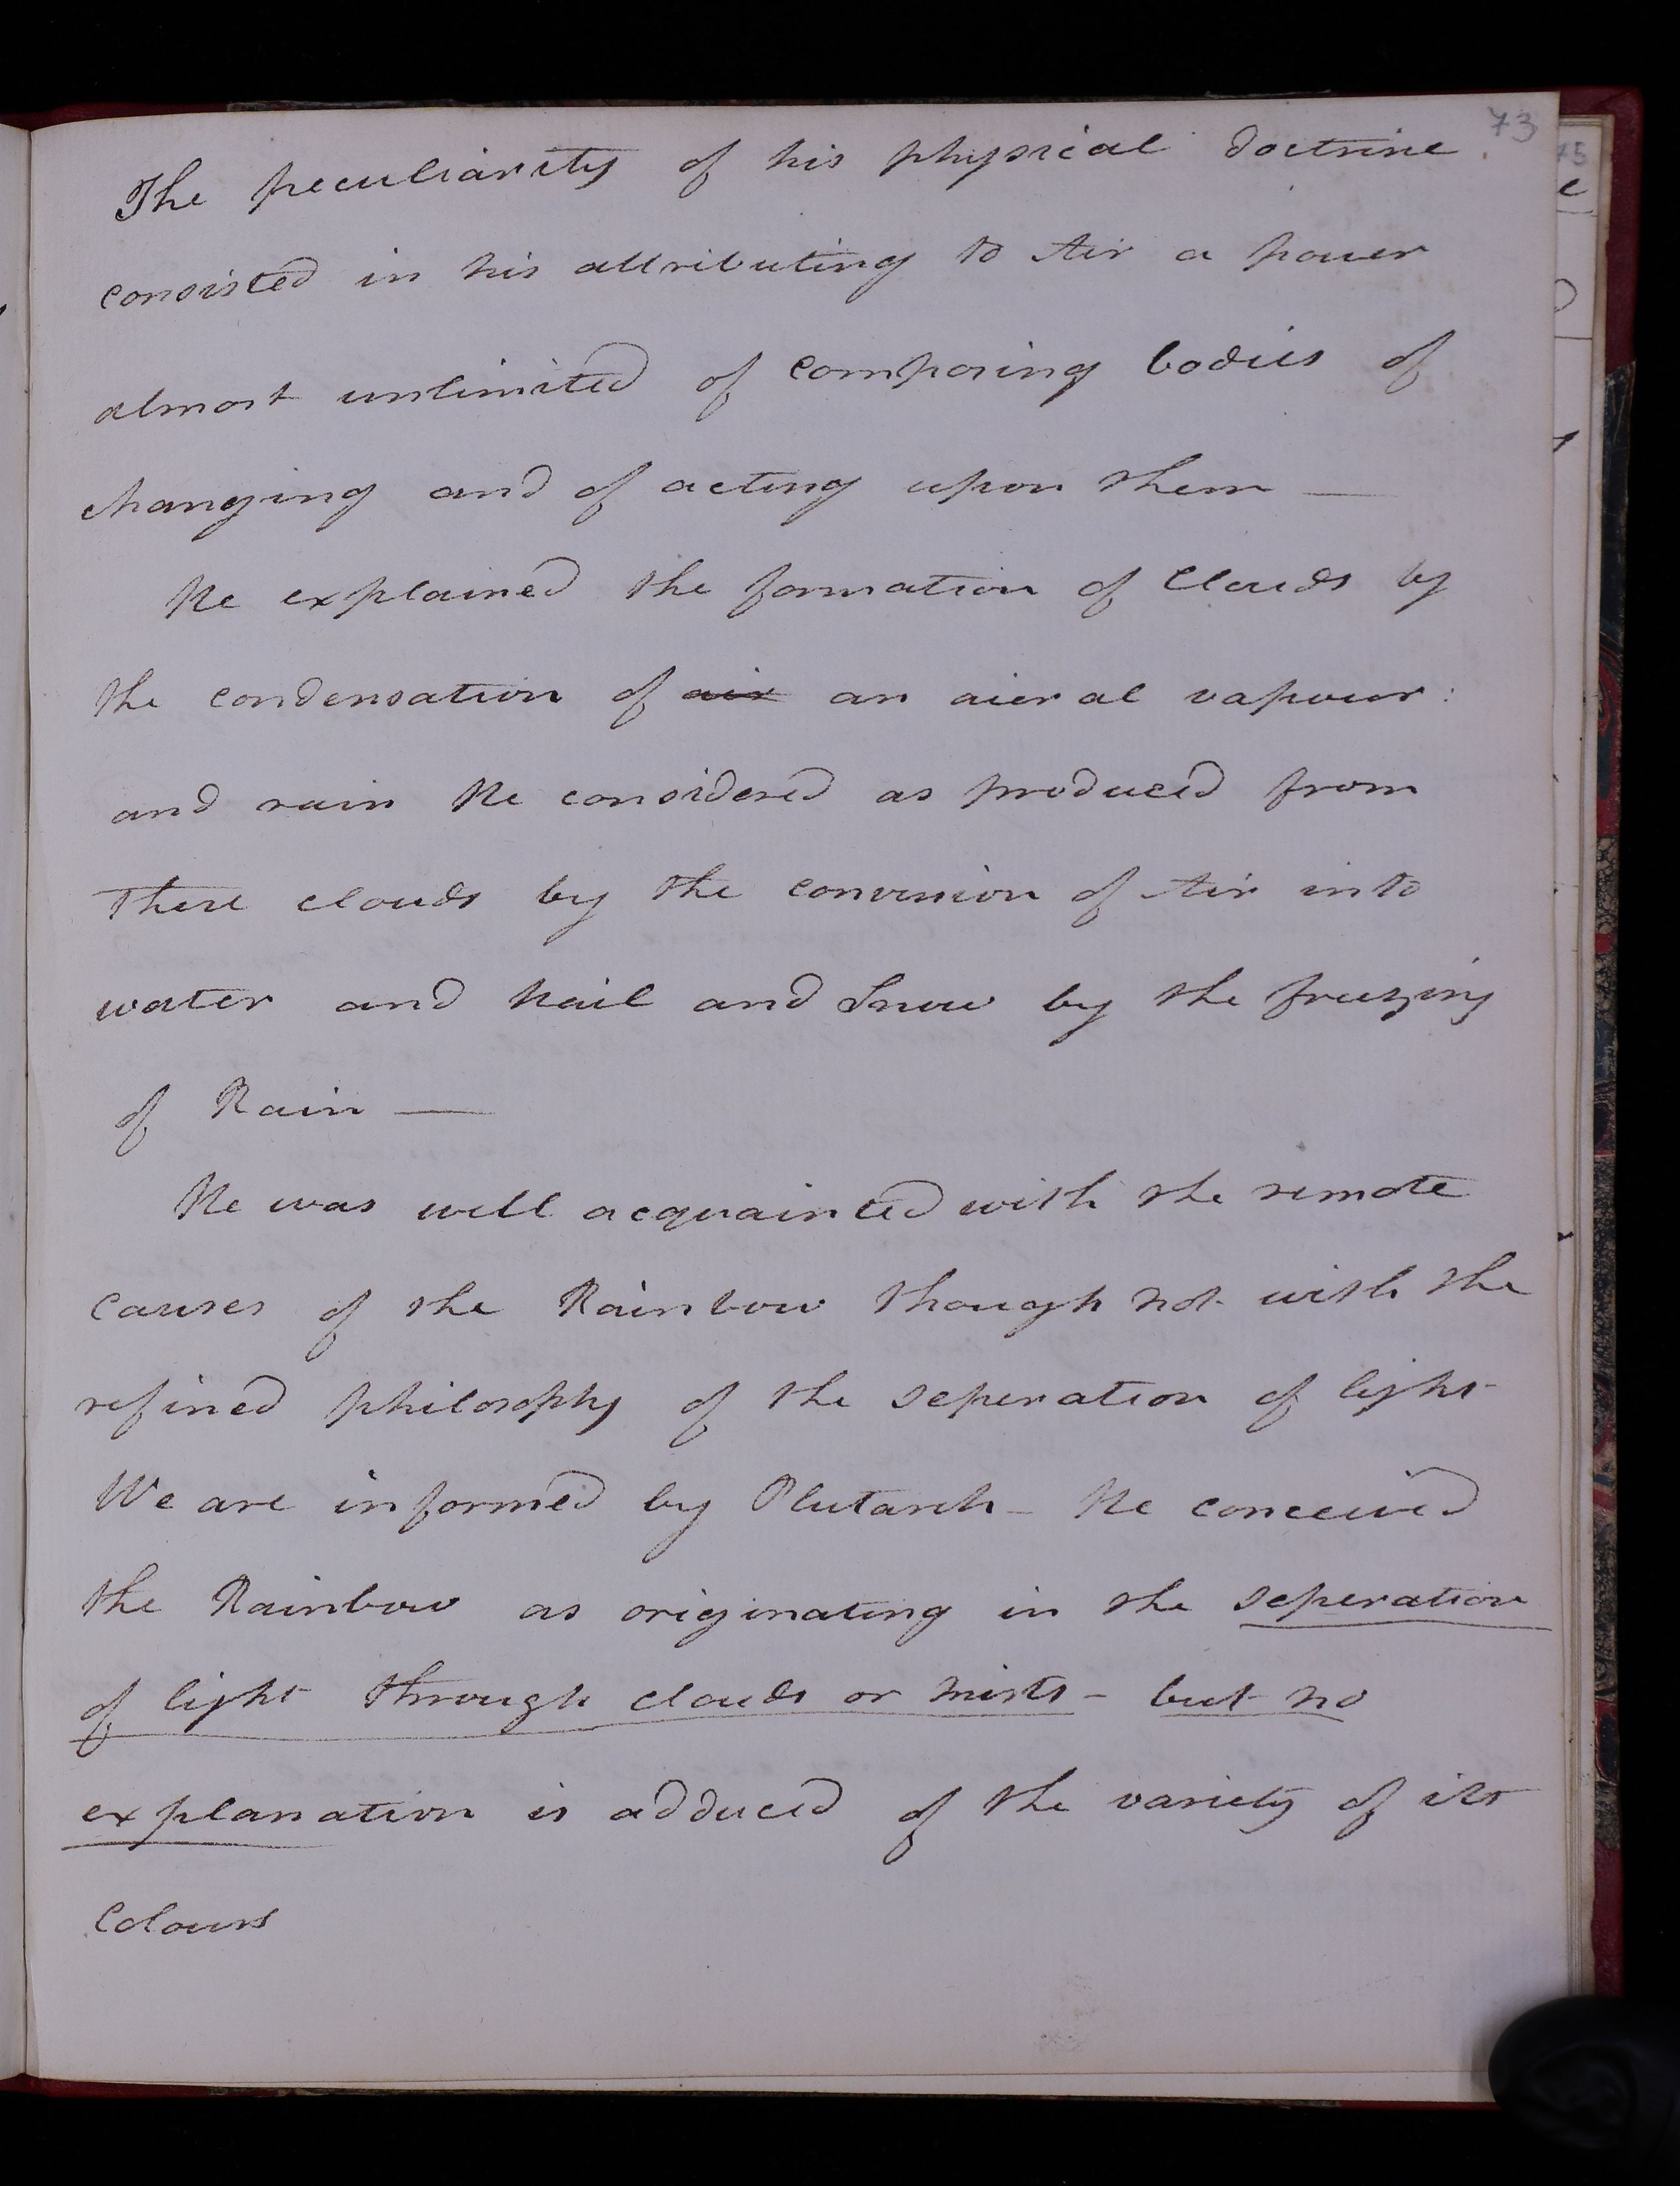 73
The peculiarity of his physical doctrine
consisted in his attributing to Air a power
almost unlimited of composing bodies of
changing and of acting upon them —
He explained the formation of Clouds by
the condensation of air an aieral vapour:
and rain He considered as produced from
These clouds by the conversion of Air into
water and Hail and Snow by the freezing
of Rain —
He was well acquainted with the remote
causes of the Rainbow though not with the
refined philosophy of the seperation of light
We are informed by Plutarch - He conceived
the Rainbow as originating in the seperation
of light through clouds or mists - but no
explanation is adduced of the variety of its
Colours